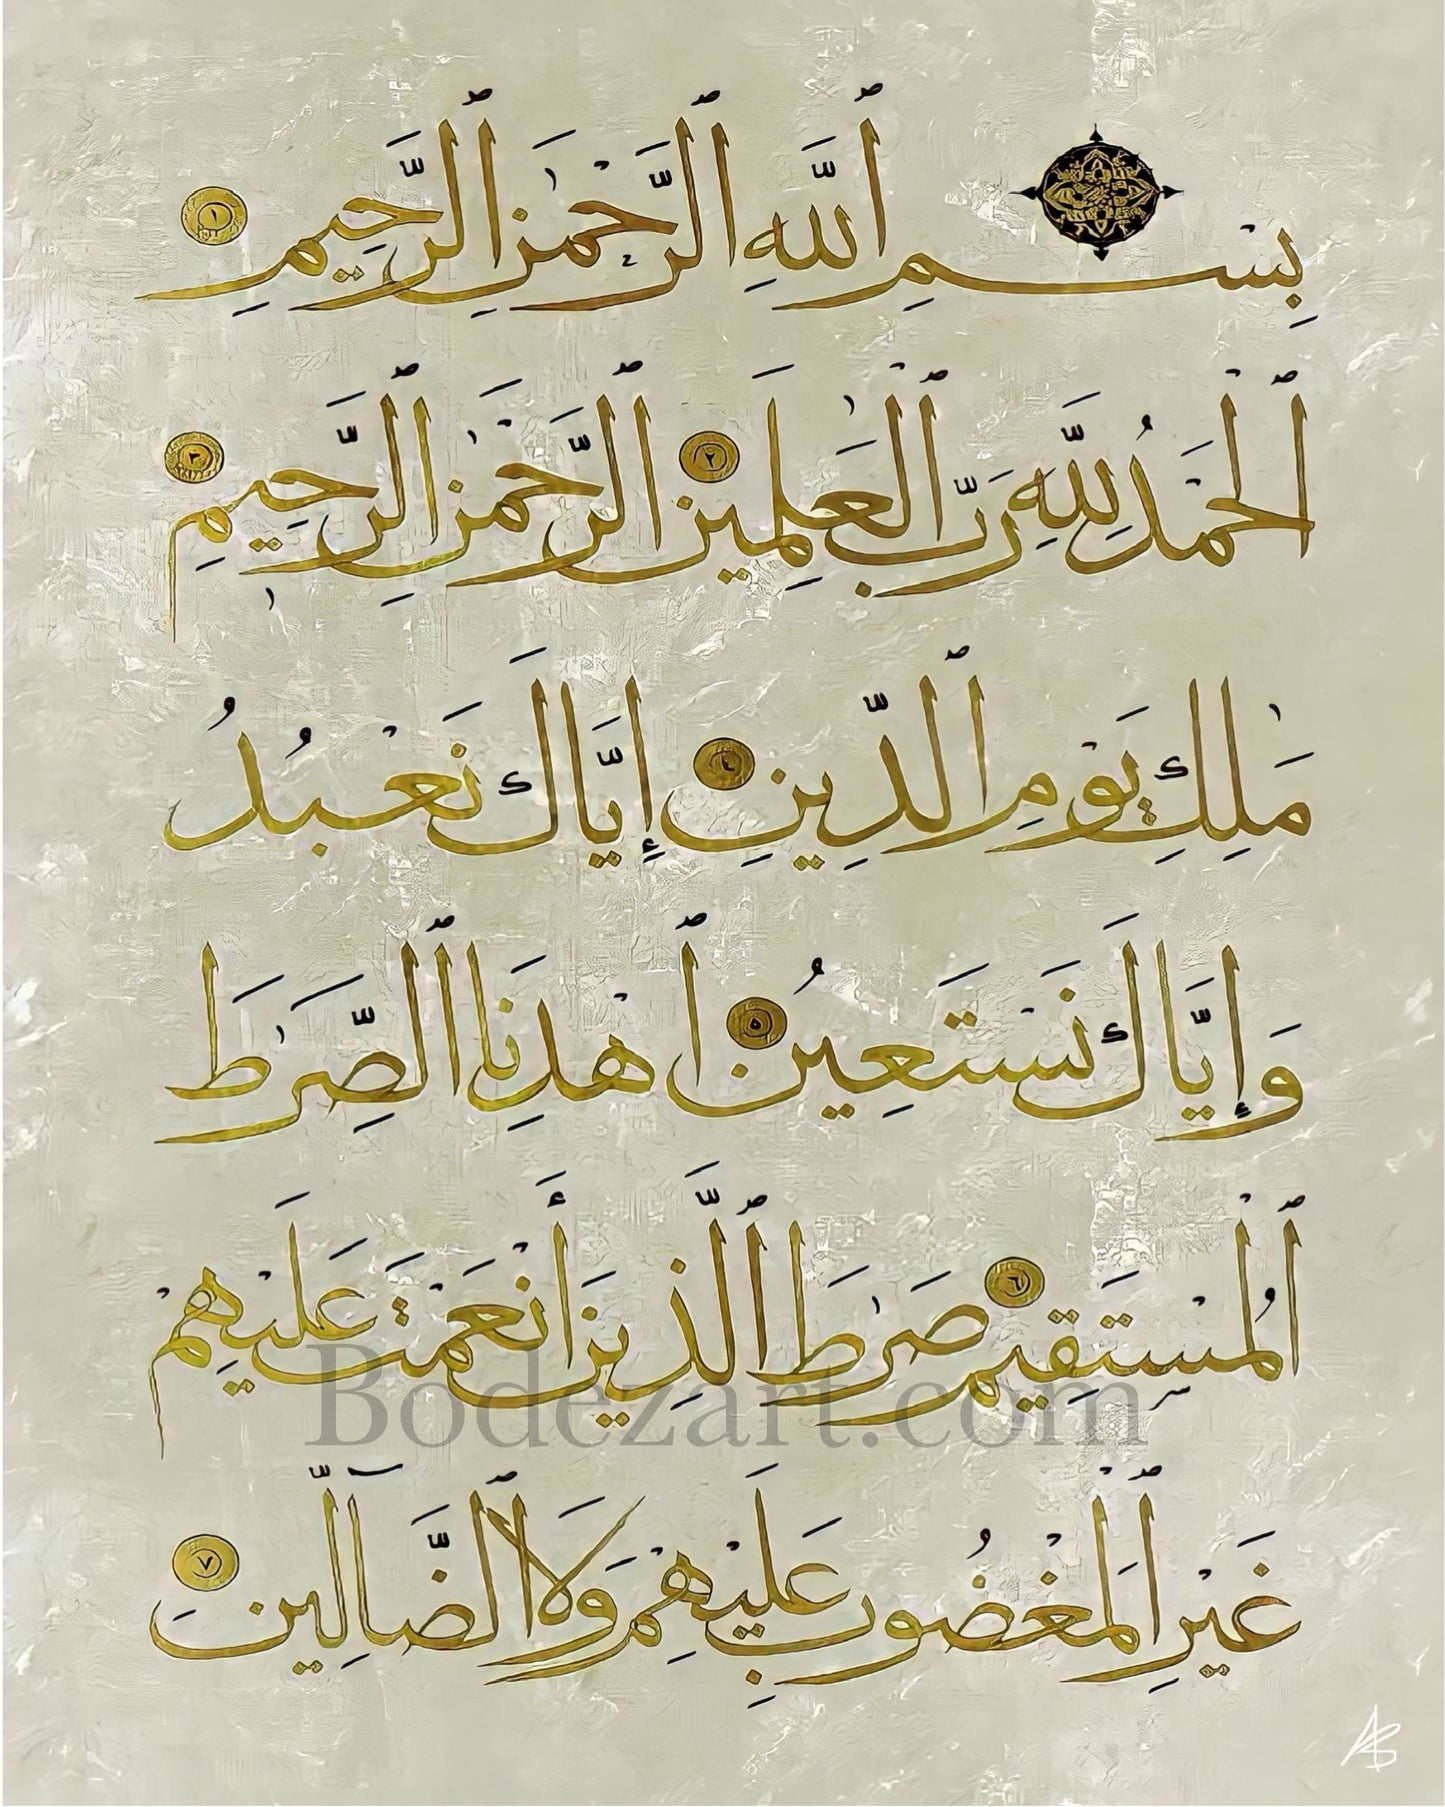 بِسْمِ ٱللَّهِ ٱلرَّحْمَٰنِ ٱلرَّحِيمِ ١
ٱلْحَمْدُ لِلَّهِ رَبِّ ٱلْعَٰلَمِينَ ٢ ٱلرَّحْمَٰنِ ٱلرَّحِيمِ ٣
مَٰلِكِ يَوْمِ ٱلدِّينِ ٤ إِيَّاكَ نَعْبُدُ
وَإِيَّاكَ نَسْتَعِينُ ٥ ٱهْدِنَا ٱلصِّرَٰطَ
ٱلْمُسْتَقِيمَ ٦ صِرَٰطَ ٱلَّذِينَ أَنْعَمْتَ عَلَيْهِمْ
Bodezart.com
غَيْرِ ٱلْمَغْضُوبِ عَلَيْهِمْ وَلَا ٱلضَّآلِّينَ ٧